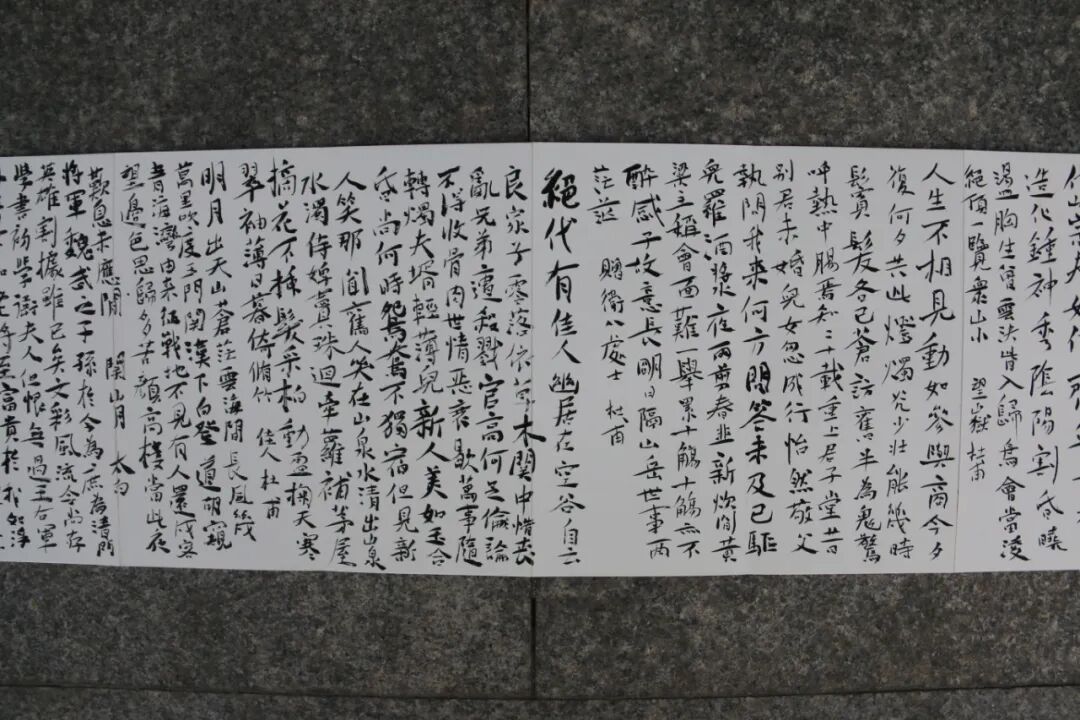 造化鍾神秀陰陽割昏曉
盪胸生曾雲決眥入歸鳥會當淩
絕頂一覽衆山小 望嶽 杜甫
人生不相見動如參與商今夕
復何夕共此燈燭光少壯能幾時
鬢髮各已蒼訪舊半為鬼驚
呼熱中腸焉知二十載重上君子堂昔
別君未婚兒女忽成行怡然敬父
執問我來何方問答未及已驅
兒羅酒漿夜雨剪春韭新炊間黃
梁主稱會面難一舉累十觴十觴亦不
醉感子故意長明日隔山岳世事兩
茫茫 贈衛八處士 杜甫
絕代有佳人幽居在空谷自云
良家子零落依草木關中惜喪
亂兄弟遭殺戮官高何足倫論
不得收骨肉世情惡衰歇萬事隨
轉燭夫壻輕薄兒新人美如玉合
昏尚何時鴛鴦不獨宿但見新
人笑那聞舊人哭在山泉水清出山泉
水濁侍婢賣珠迴牽蘿補茅屋
摘花不插髮采柏動盈掬天寒
翠袖薄日暮倚脩竹 佳人 杜甫
明月出天山蒼茫雲海間長風幾
萬里吹度玉門關漢下白登道胡窺
青海灣由來征戰地不見有人還戍客
望邊色思歸多苦顏高樓當此夜
歎息未應閒 關山月 太白
將軍魏武之子孫於今為庶為清門
英雄割據雖已矣文彩風流今尚存
學書初學衛夫人但恨無過王右軍
富貴於我如浮